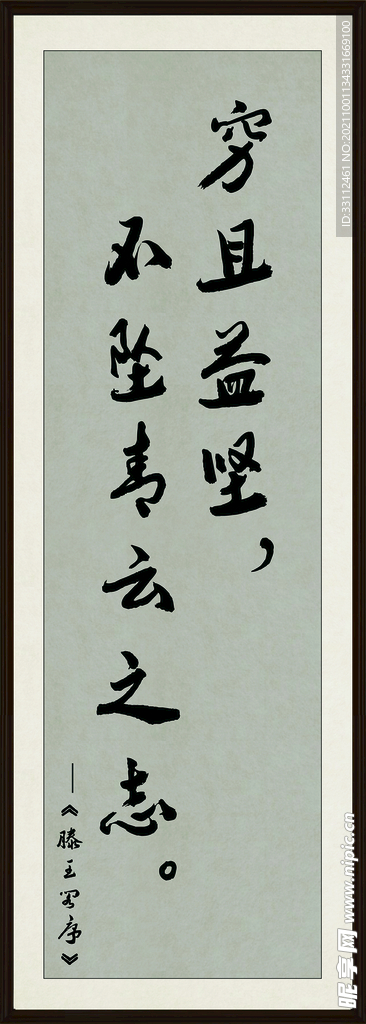 穷且益坚，
不坠青云之志。
—《滕王阁序》
ID:33112461 NO:20211001134331669100
昵享网 www.nipic.cn